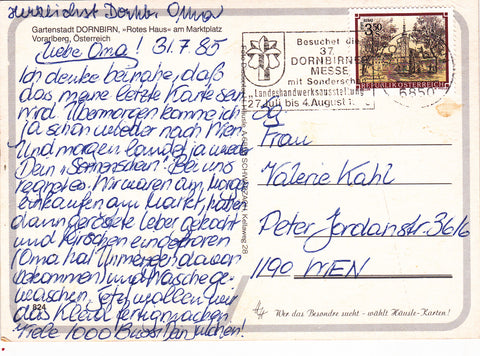 herzlichst Dornb. Oma
Gartenstadt DORNBIRN, »Rotes Haus« am Marktplatz
Vorarlberg, Österreich
Liebe Oma! 31.7.85
Ich denke beinahe, daß
das meine letzte Karte sein
wird. Übermorgen komme ich
ja schon wieder nach Wien
Und morgen landet ja wieder
Dein "Sonnenschein"! Bei uns
regnet es. Wir waren am
einkaufen am Markt, haben
dann geröstete Leber gekocht
und Kirschen eingefroren
(Oma hat Unmengen davon
bekommen) und Wäsche ge-
waschen. Jetzt wollen wir
das Kleid fertigmachen
Viele 1000 Bussi
824
SCHWARZACH, Kellaweg 28
Besuchet die
37.
DORNBIRNER
MESSE
mit Sonderschau
Landeshandwerksausstellung
27. Juli bis 4. August
6850
3.50
REPUBLIK ÖSTERREICH
Frau
Valerie Kahl
Peter Jordanstr. 36/6
1190 WIEN
Wer das Besondre sucht - wählt Häusle-Karten!